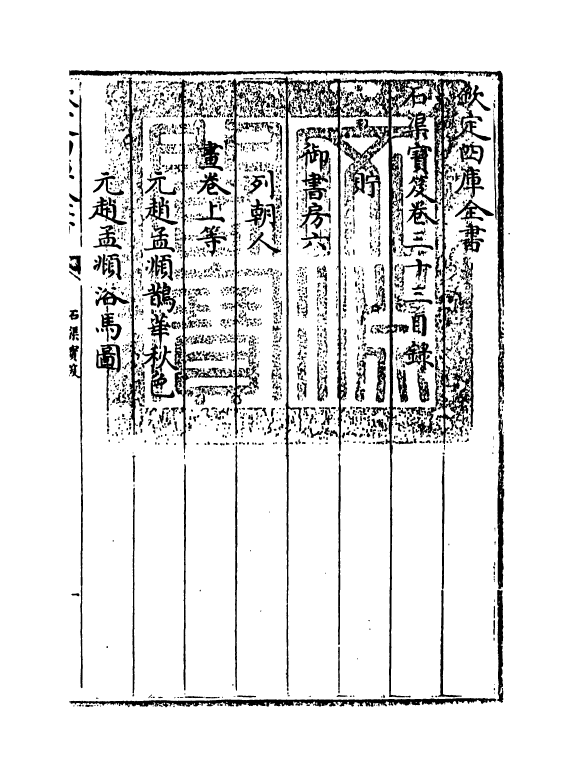 欽定四庫全書
石渠寶笈卷三十三目錄
貯
御書房六
列朝人
畫卷上等
元趙孟頫鵲華秋色
元趙孟頫浴馬圖
石渠寶笈
一